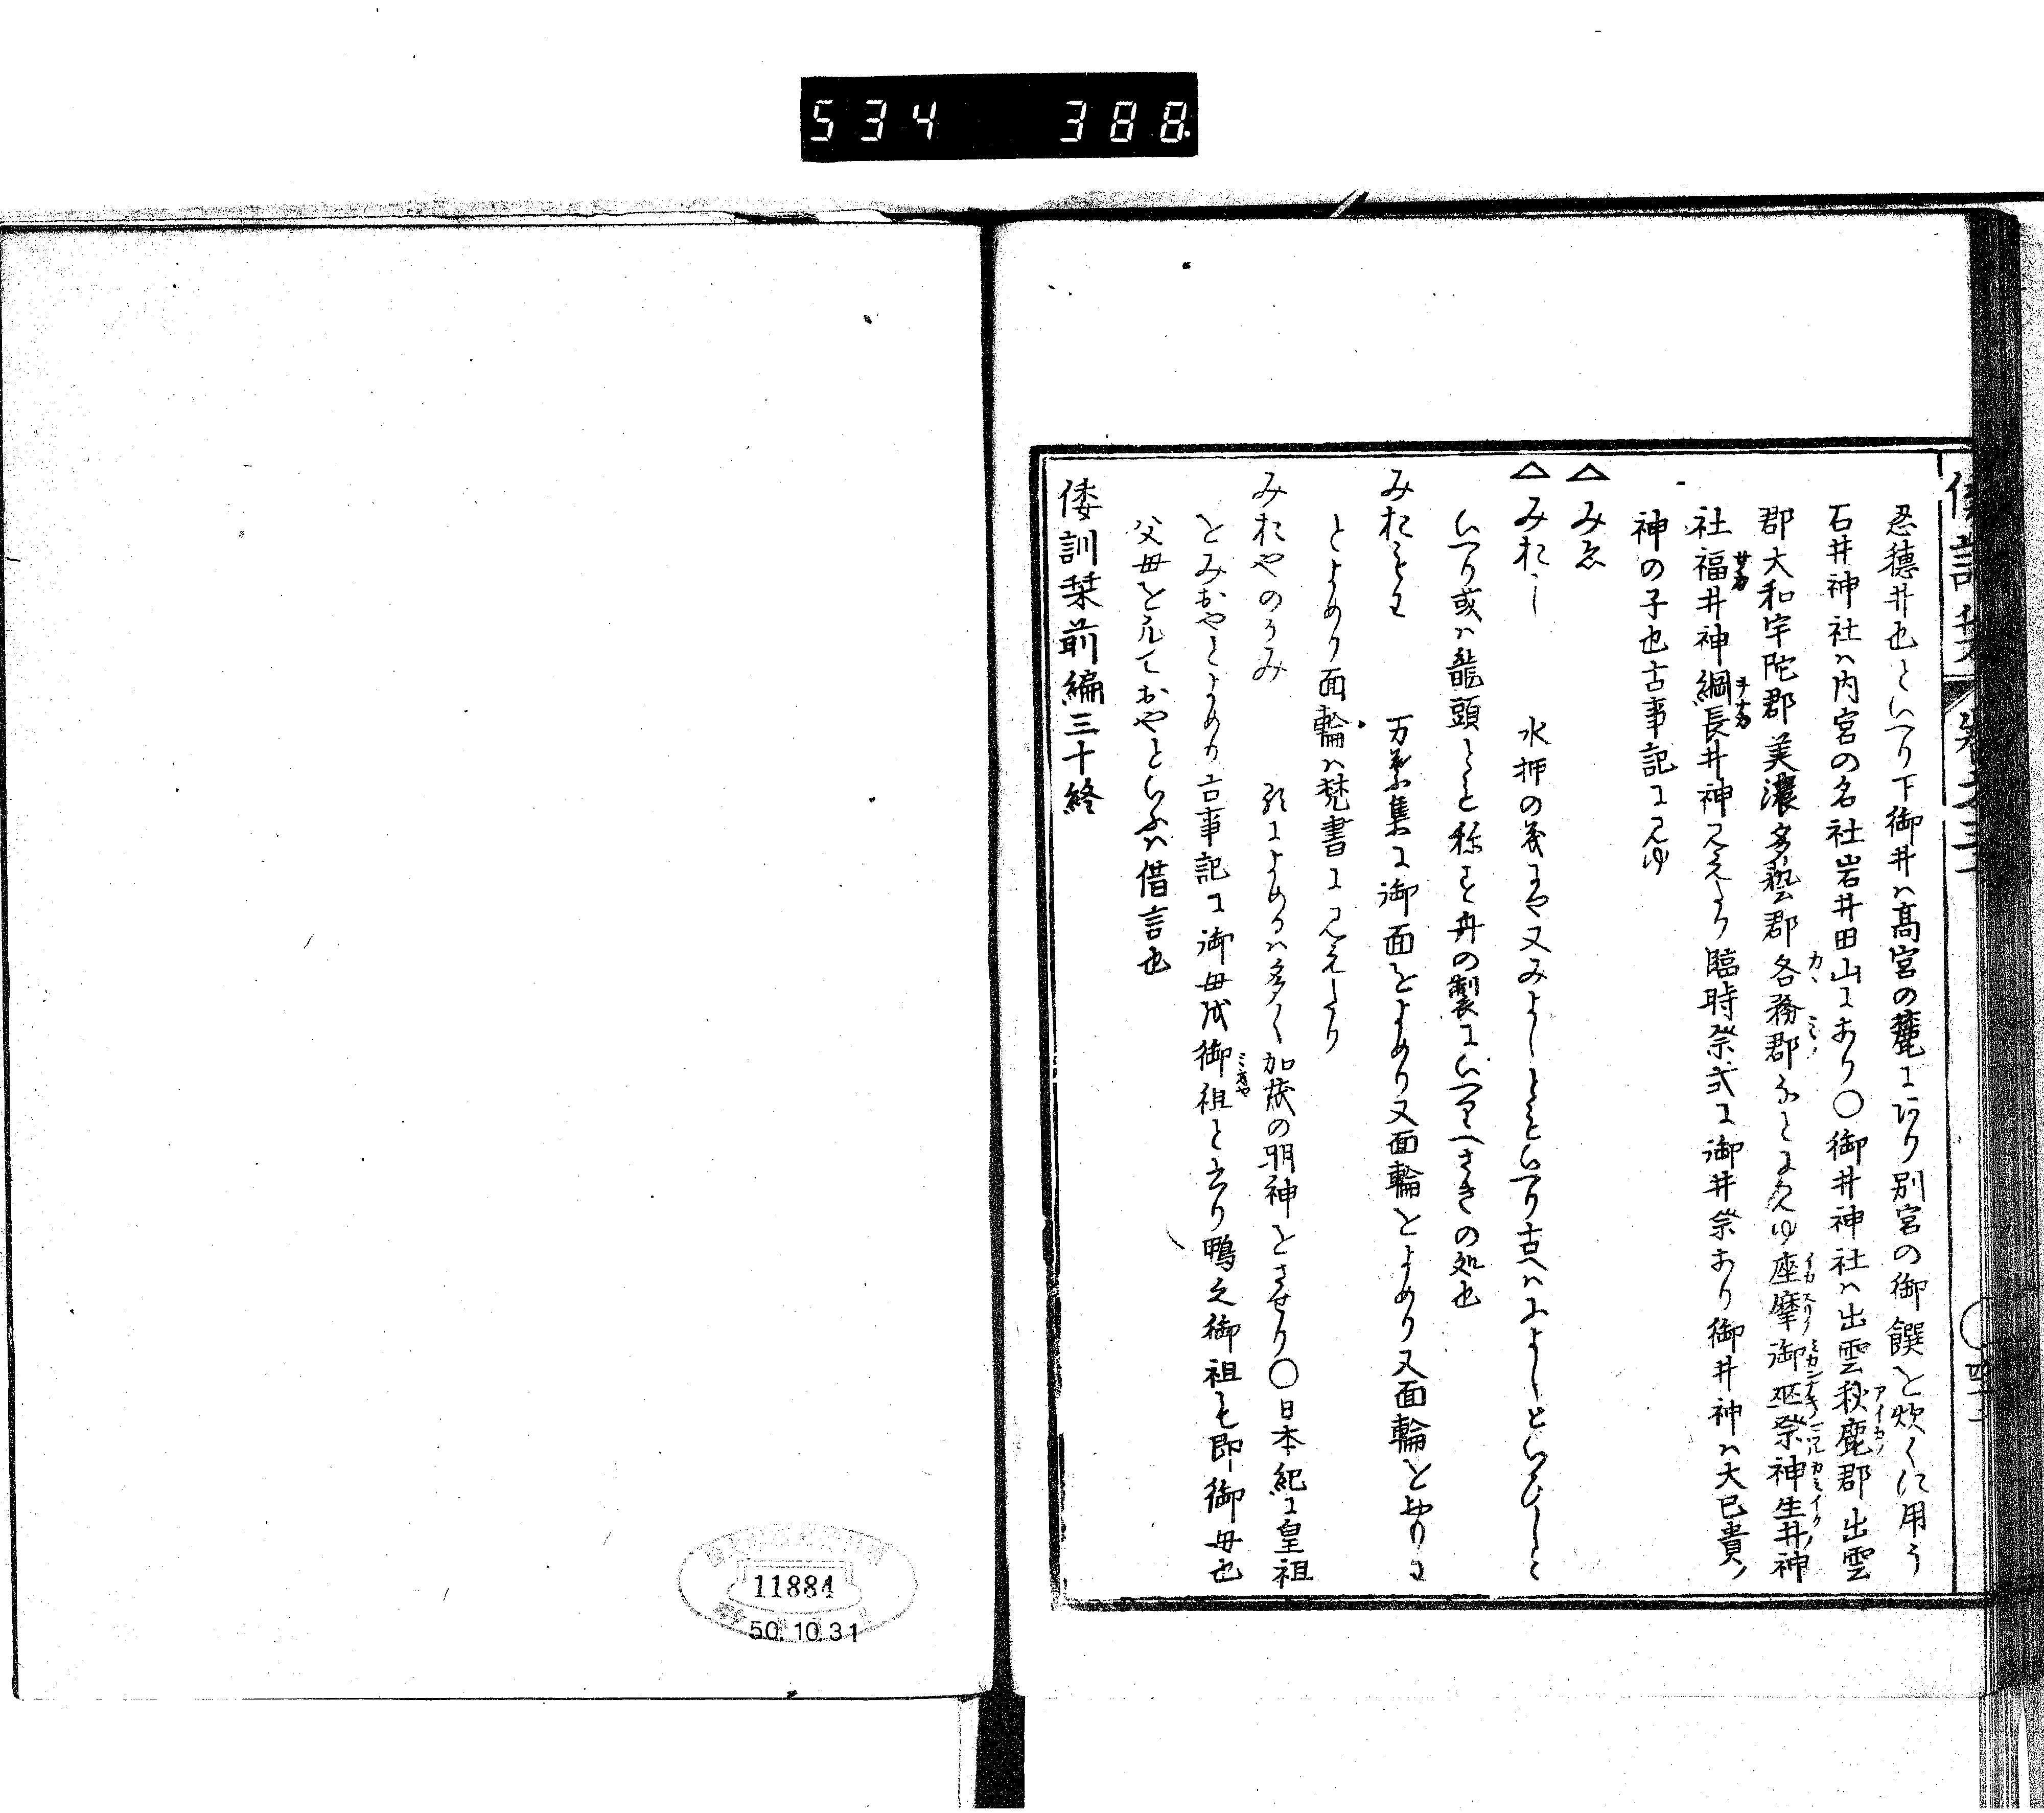 534 388
忍穂井也といへり下御井ハ高宮の麓にあり別宮の御饌を炊くに用う
石井神社ハ内宮の名社岩井田山にあり〇御井神社ハ出雲秋鹿郡出雲
郡大和宇陀郡美濃多藝郡各務郡なとに見ゆ座摩御巫祭神生井神
社福井神綱長井神見えたり臨時祭式に御井祭あり御井神ハ大己貴ノ
神の子也古事記に見ゆ
△みゑ
△みおし 水押の義にや又みよしともいへり古へハふよしといひしと
いへり或ハ龍頭とも称す舟の製にいへるへさきの処也
みおもわ 万葉集に御面をよめり又面輪とよめり又面輪と
とよめり面輪ハ梵書に見えたり
みおやのかみ 歌によめるハ多く加茂の明神をさせり〇日本紀に皇祖
をみおやとよめり古事記に御母或御祖と云り鴨之御祖も即御母也
父母を凡ておやといふハ借言也
倭訓栞前編三十終
11884
50.10.31